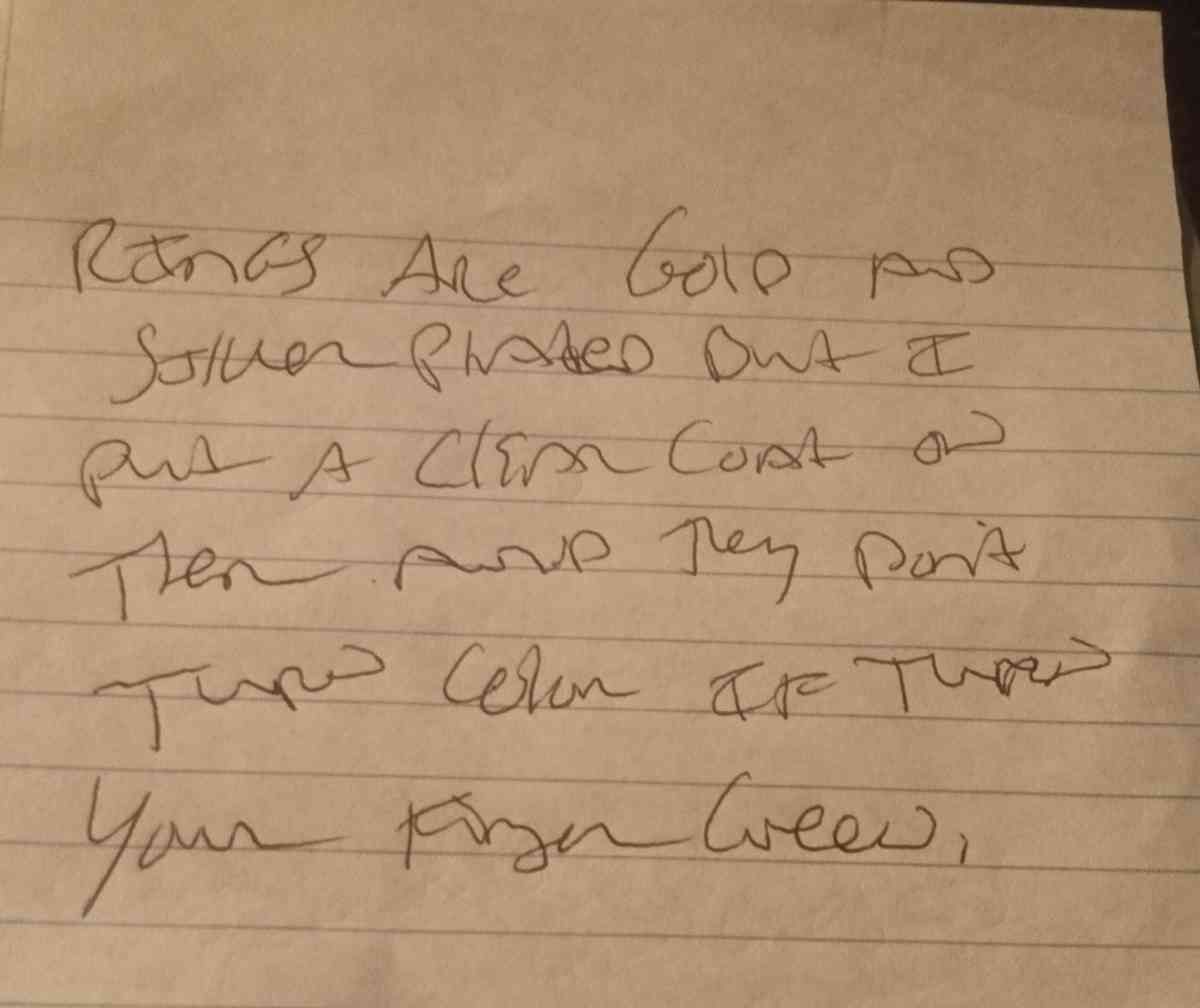 Rings Are Gold and
Silver Plated But I
put A Clear Coat on
Them and They Don't
Turn Color If Turn
Your Finger Green,